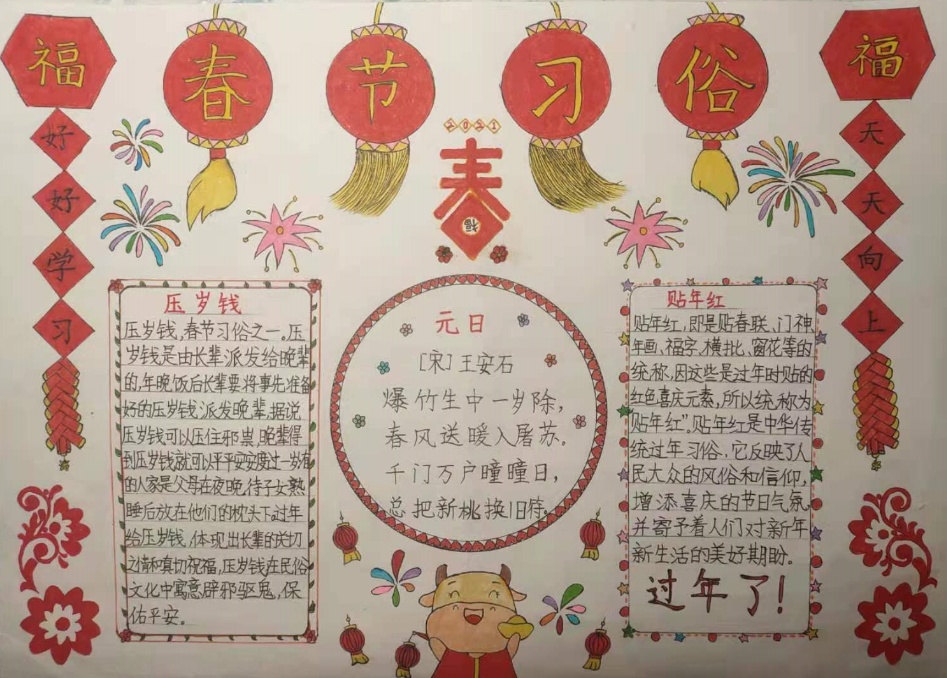 福
春节习俗
福
好好学习
天天向上
2021
春
福
压岁钱
压岁钱,春节习俗之一。压
岁钱是由长辈派发给晚辈
的,年晚饭后长辈要将事先准备
好的压岁钱派发晚辈,据说
压岁钱可以压住邪祟,晚辈得
到压岁钱就可以平平安安度过一岁有
的人家是父母在夜晚,待子女熟
睡后放在他们的枕头下,过年
给压岁钱,体现出长辈的关切
之情和真切祝福,压岁钱在民俗
文化中寓意辟邪驱鬼,保
佑平安。
元日
[宋]王安石
爆竹生中一岁除,
春风送暖入屠苏。
千门万户曈曈日,
总把新桃换旧符。
贴年红
贴年红,即是贴春联、门神
年画、福字、横批、窗花等的
统称,因这些是过年时贴的
红色喜庆元素,所以统称为
“贴年红”,贴年红是中华传
统过年习俗,它反映了人
民大众的风俗和信仰,
增添喜庆的节日气氛,
并寄予着人们对新年
新生活的美好期盼。
过年了!